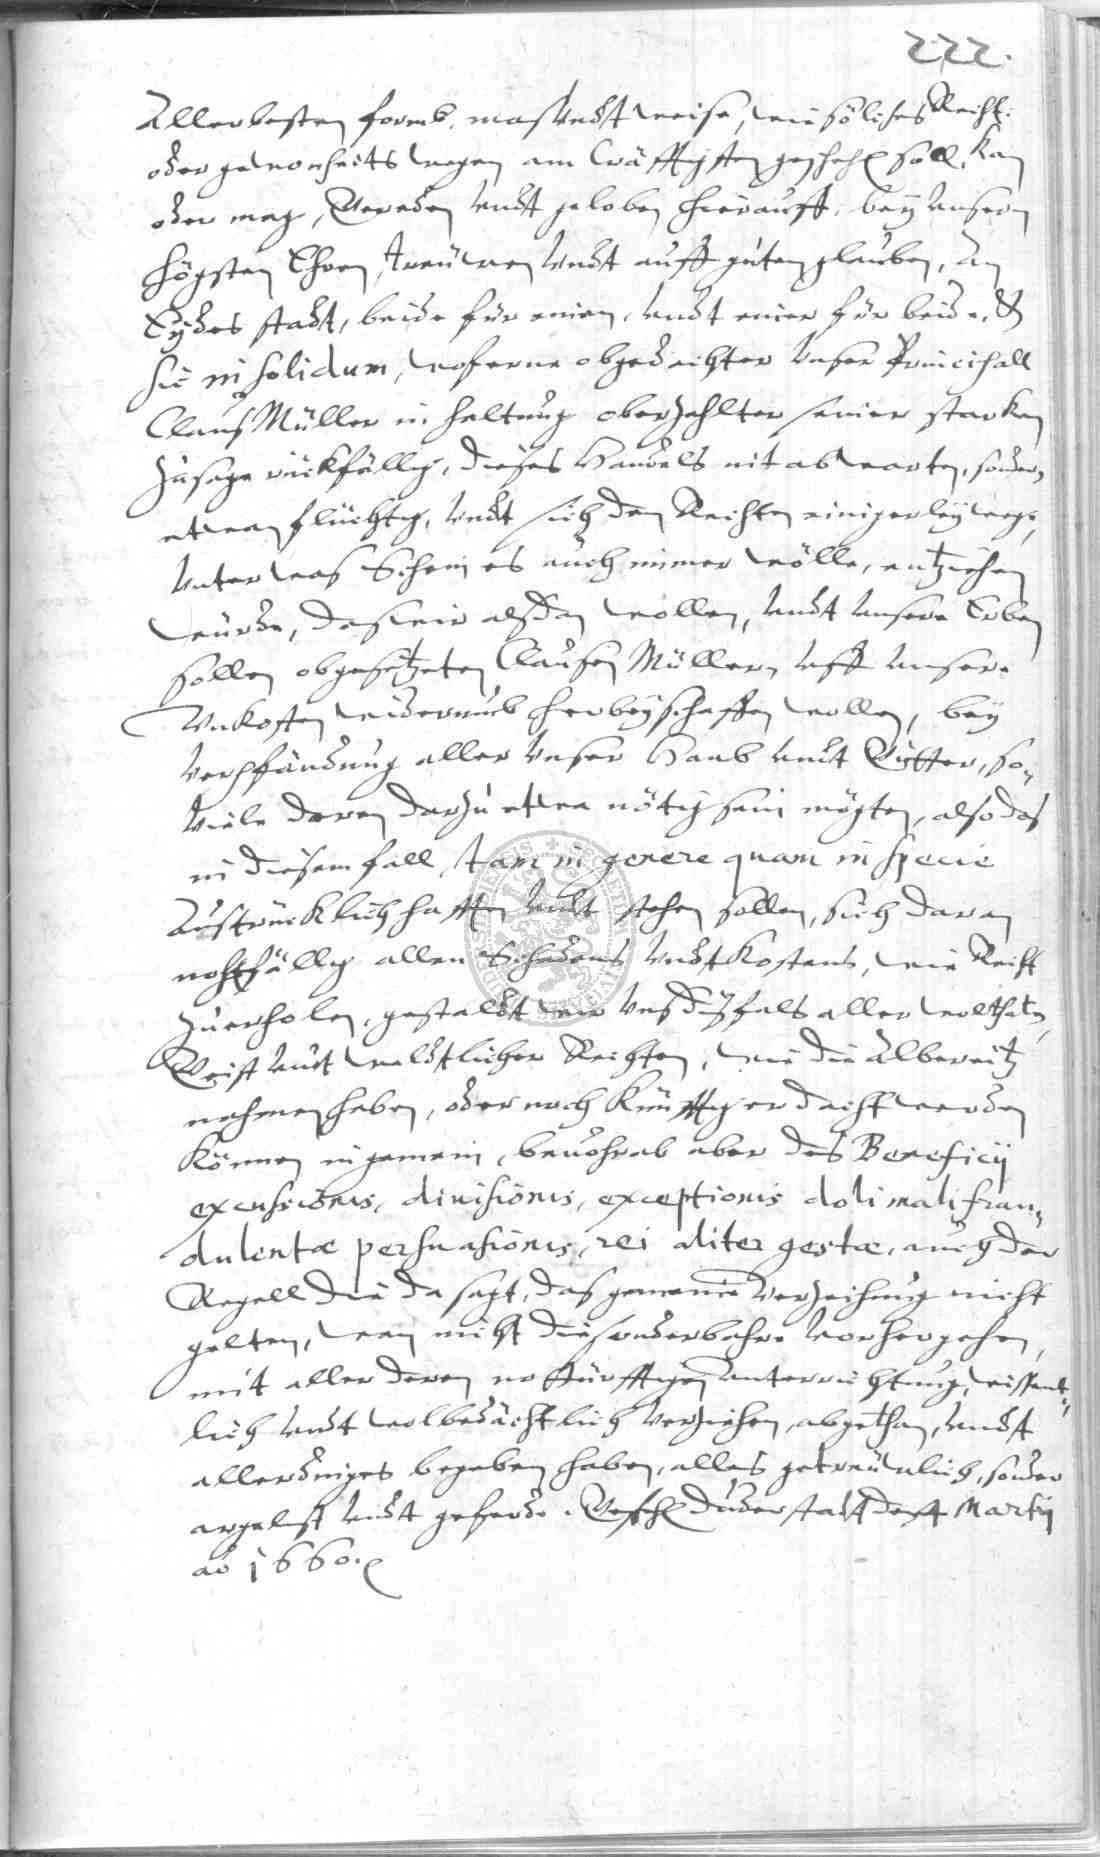 222.
Allerbesten formb, mas Undt weise, wie söliches Recht:
oder gewonheits wegen am Cräfftigsten gescheh soll, Kan
oder mag, Vereden undt geloben hierauff, bey Unsern
högsten Ehren, treüwen Undt auff guten glauben, An
Eydes stadt, beide für einen, undt einer für beide, &
sie in solidum, woferne obgedachter Unser Principall
Claus Müller in haltung oberzehlter seiner starken
zusage rückfällig, dieses Handels nit abwarten, sondern
etwan flüchtig, Undt sich den Rechten einigerley wege,
Unter was Schein es auch immer wölle, entziehen
würde, das wir alsdan wollen, Undt Unsere Erben
sollen obgesetzeten Clausen Müllern uff Unsere
Unkosten widerumb herbeyschaffen wollen, bey
Verpfändung aller Unser Haab undt Gütter, so
Viele deren darzu etwa nötig sein mögten, also das
in diesem fall, tam in genere quam in specie
Austrücklich hafften undt stehen sollen, sich daran
nohtfällig allen Schadens Undt Kostens, wie Recht
zuerholen, gestaldt wir Uns dißfals aller wolthaten,
Geist undt weldtlicher Rechten, wie die Albereitz
nahmen haben, oder noch Künfftig erdacht werden
Können in gemein, beuohrab aber des Beneficij
excussionis, diuisionis, exceptionis doli mali frau=
dulentæ persuasionis, rei aliter gestæ, auch der
Regell die da sagt, das gemeine Verzeihung nicht
gelten, wan nicht die sonderbahre Vorhergehen,
mit aller deren notturfftigen Unterrichtung, wissent=
lich Undt wolbedächtlich Verziehen, abgethan, undt
allerdinges begeben haben, alles getreuwlich, sonder
argelist undt geferde. Gescheh Duderstadt den Martij
ao 1660.